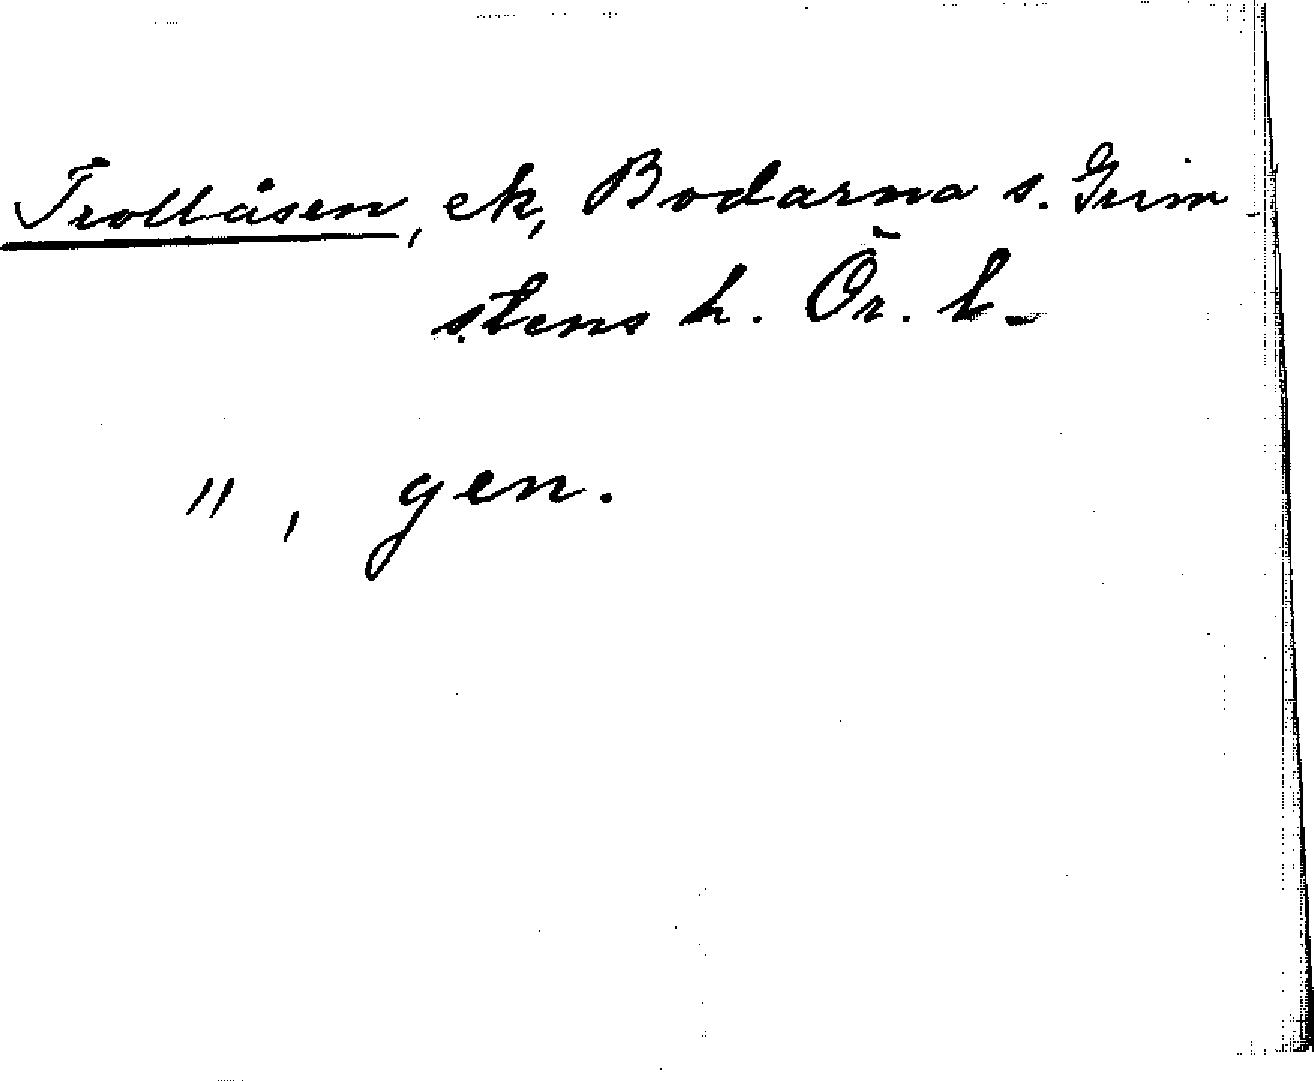 Trollåsen, ek, Bodarna s. Grim-
stens h. Ör. l.
", gen.